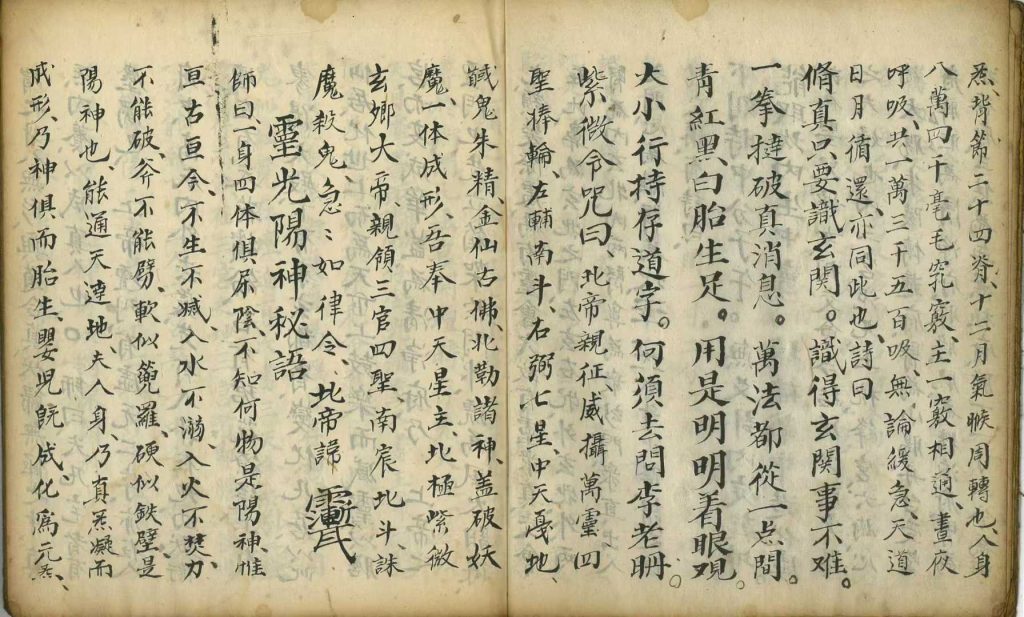 炁、背節二十四脊、十二月氣候周轉也、人身
八萬四千毫毛竅竅、主一竅相通、晝夜
呼吸、共一萬三千五百吸、無論緩急、天道
日月循還、亦同此也、詩曰
脩真只要識玄関。識得玄関事不难。
一拳撻破真消息。萬法都從一点間。
青紅黑白胎生足。用是明明着眼观。
大小行持存道字。何須去問李老聃。
紫微令咒曰、北帝親征、威攝萬靈、四
聖捧輪、左輔南斗、右弼七星、中天戞地、
馘鬼朱精、金仙古佛、北勒諸神、盖破妖
魔、一体成形、吾奉中天星主、北極紫微
玄鄉大帝、親領三官四聖、南宸北斗、誅
魔殺鬼、急〻如律令、北帝諱
靈光陽神秘語
師曰、一身四体俱屎陰、不知何物是陽神、惟
亘古亘今、不生不滅、入水不溺、入火不焚、刀
不能破、斧不能劈、軟似𥿄羅、硬似鉄壁、是
陽神也、能通天達地、夫人身、乃真炁凝而
成形、乃神俱而胎生、嬰児既成、化爲元炁、